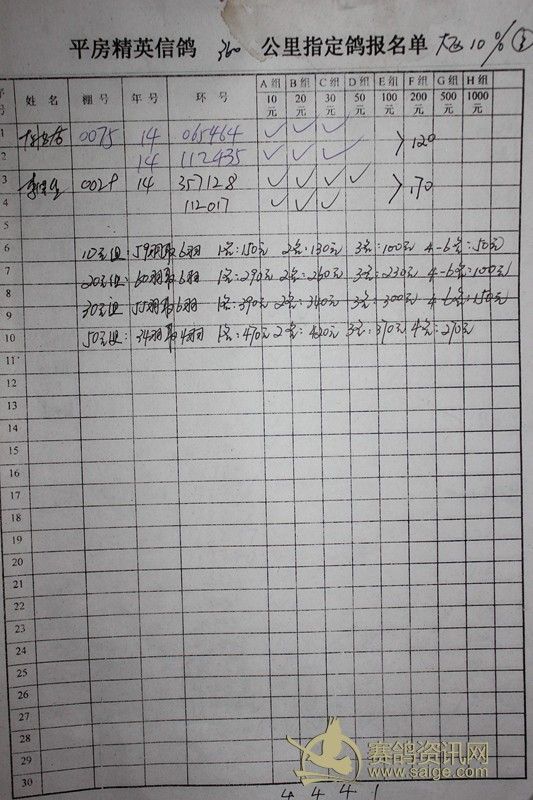 平房精英信鸽 360 公里指定鸽报名单 10%
序号 姓名 棚号 年号 环号 A组10元 B组20元 C组30元 D组50元 E组100元 F组200元 G组500元 H组1000元
1 0075 14 065464 ✓ ✓ ✓ > 120
2 14 112435 ✓ ✓ ✓
3 0029 14 357128 ✓ ✓ ✓ ✓ > 170
4 112017 ✓ ✓ ✓
5
6 10元组: 59羽取6羽 1名:150元 2名:130元 3名:100元 4-6名:50元
7 20元组: 60羽取6羽 1名:290元 2名:260元 3名:230元 4-6名:100元
8 30元组: 55羽取6羽 1名:390元 2名:340元 3名:300元 4-6名:150元
9
10 50元组: 34羽取4羽 1名:470元 2名:420元 3名:370元 4名:270元
11
12
13
14
15
16
17
18
19
20
21
22
23
24
25
26
27
28
29
30
4 4 4 1
赛鸽资讯网
www.saige.com